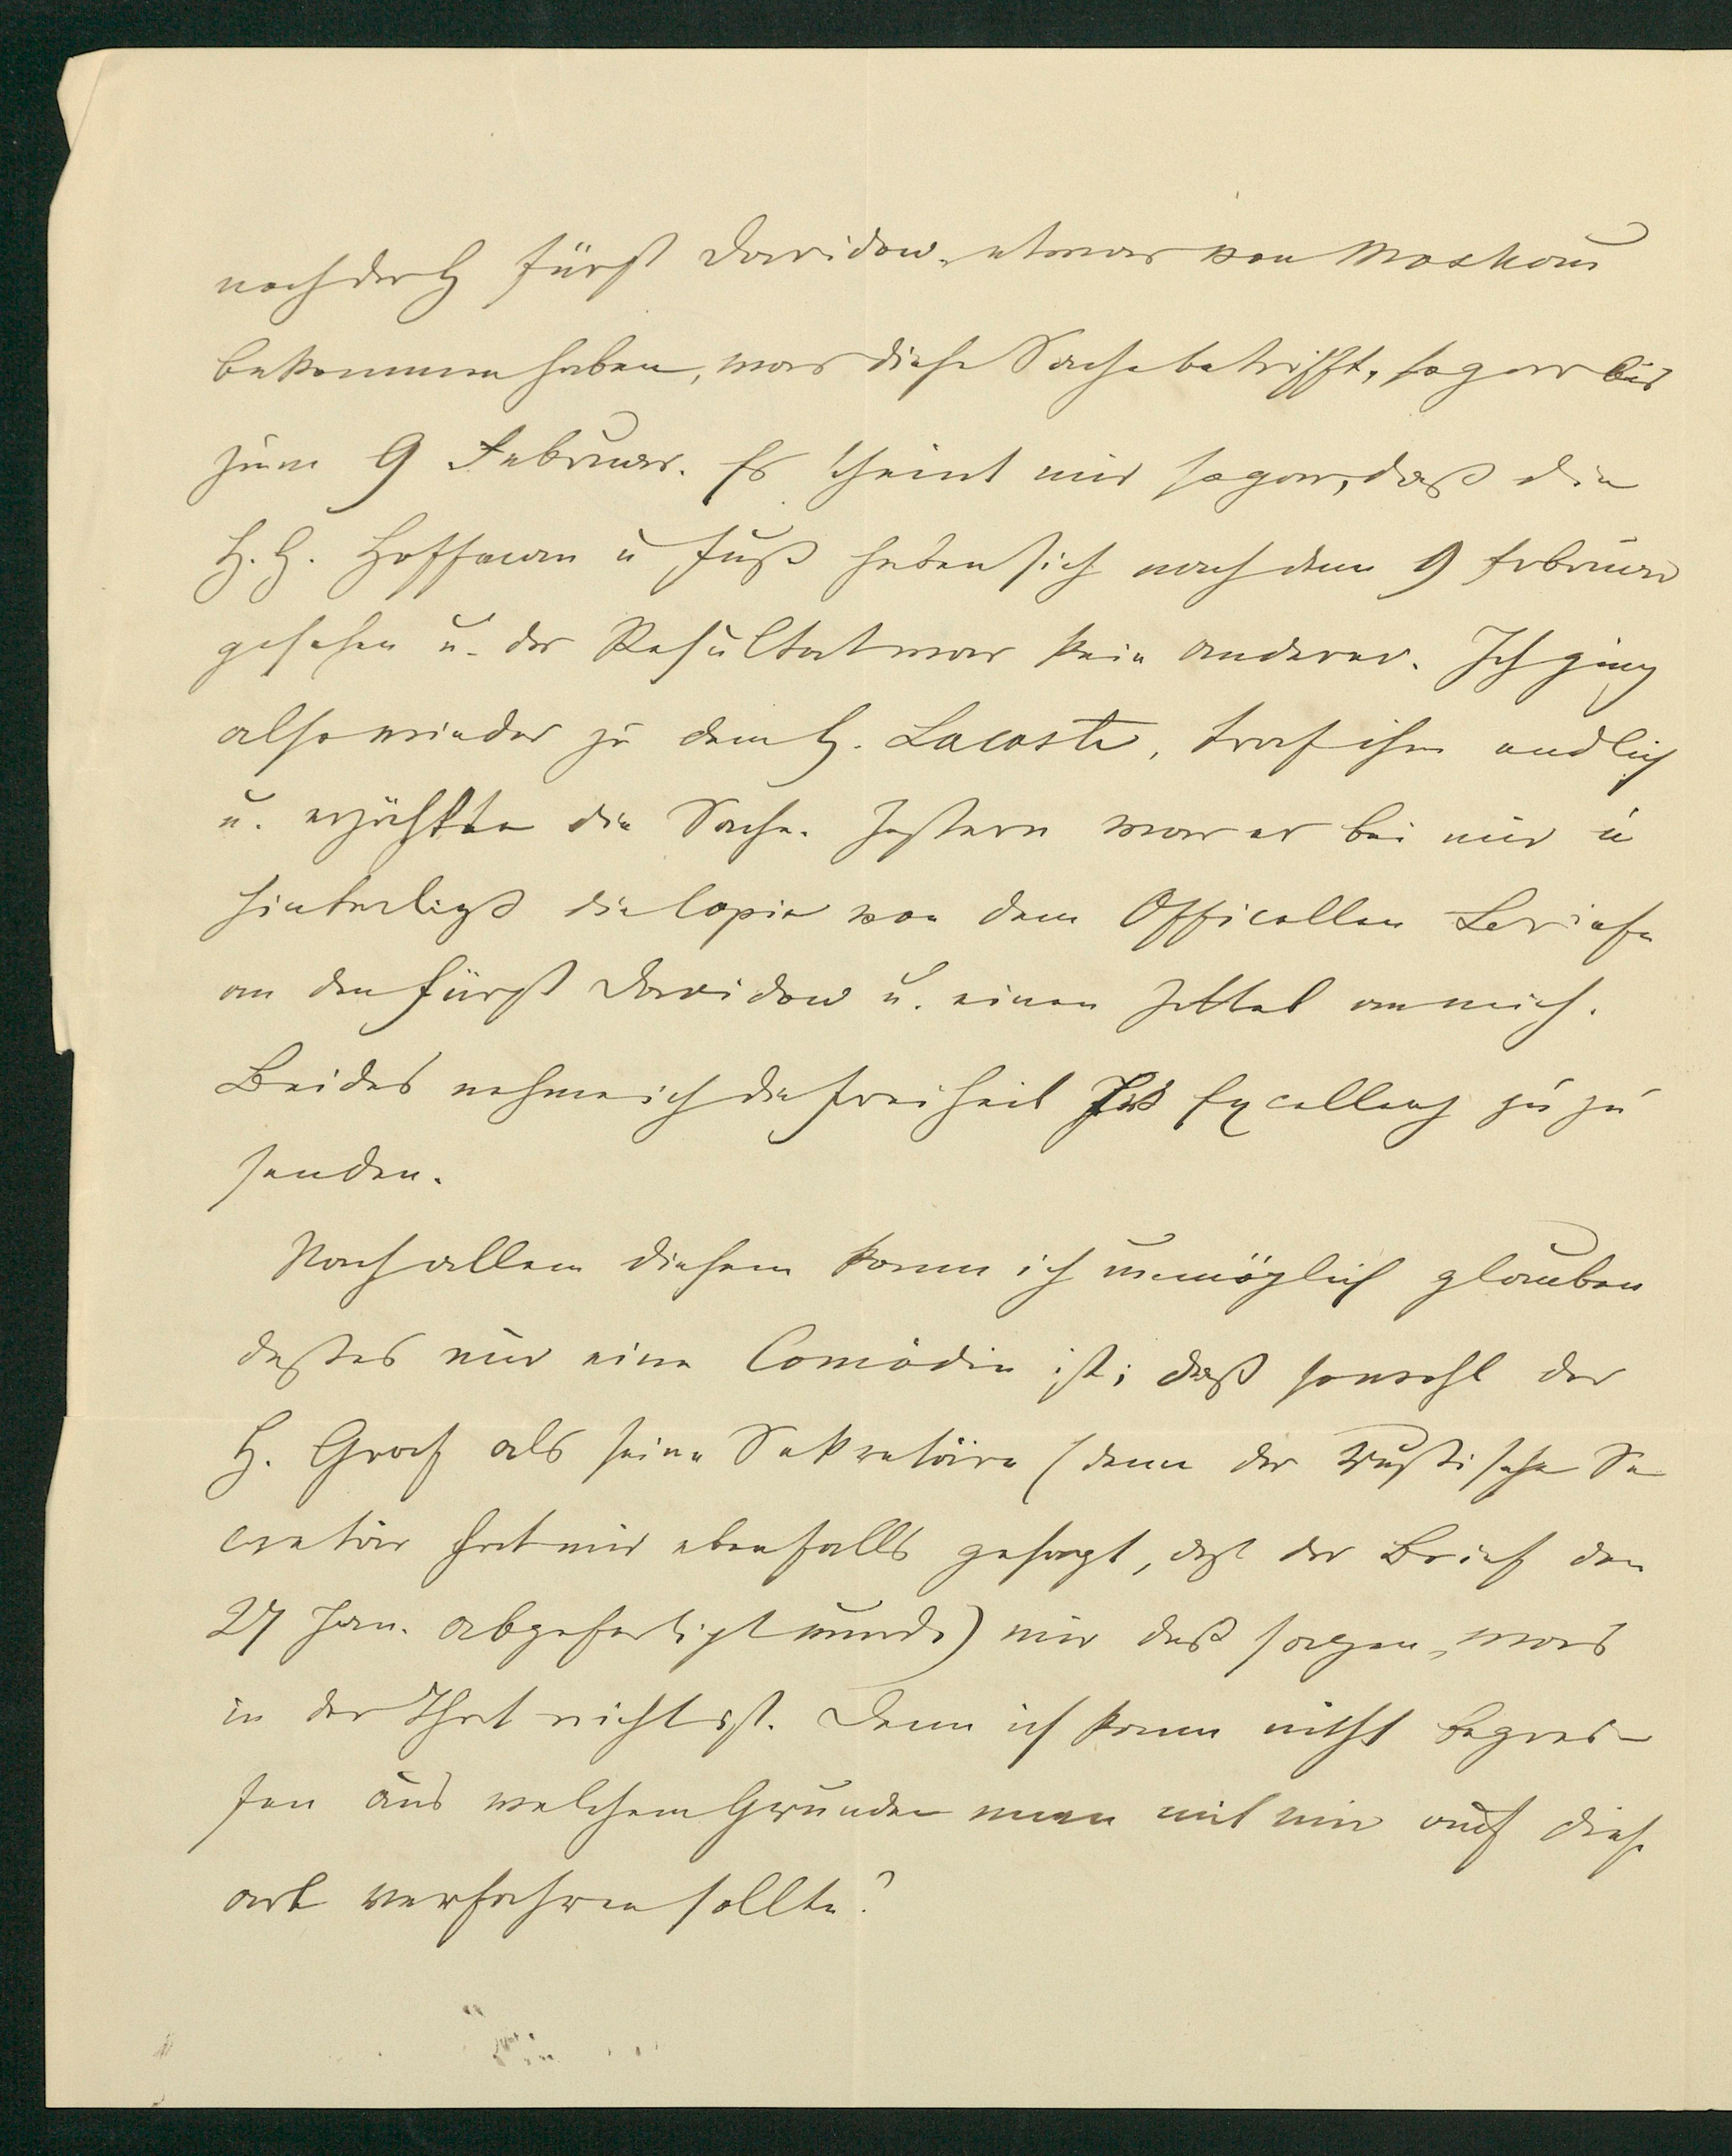 noch der H Fürst Davidow etwas von Moskau
bekommen haben, was diese Sache betrifft, sogar bis
zum 9 Februar. Es scheint mir sogar, daß die
H. H. Hoffman u Fuß haben sich nach dem 9 Februar
gesehen u. der Resultat war kein anderer. Ich ging
also wieder zu dem H. Lacoste, traf ihn endlich
u. erzählte die Sache. Gestern war er bei mir u
hinterließ die Copie von dem Officellen Briefe
an den Fürst Davidow u. einen Zettel an mich.
Beides nehme ich die Freiheit Excellenz zu zu
senden.
Nach allem diesem kann ich unmöglich glauben
daß es nur eine Comödie ist; daß sowohl der
H. Graf als seine Sekretäre (denn der Russische Se
cretär hat mir ebenfalls gesagt, daß der Brief den
27 Jan. abgefertigt wurde) mir daß sagen, was
in der That nicht ist. Denn ich kann nicht begrei-
fen aus welchem Grunde man mit mir auf diese
art verfahren sollte?